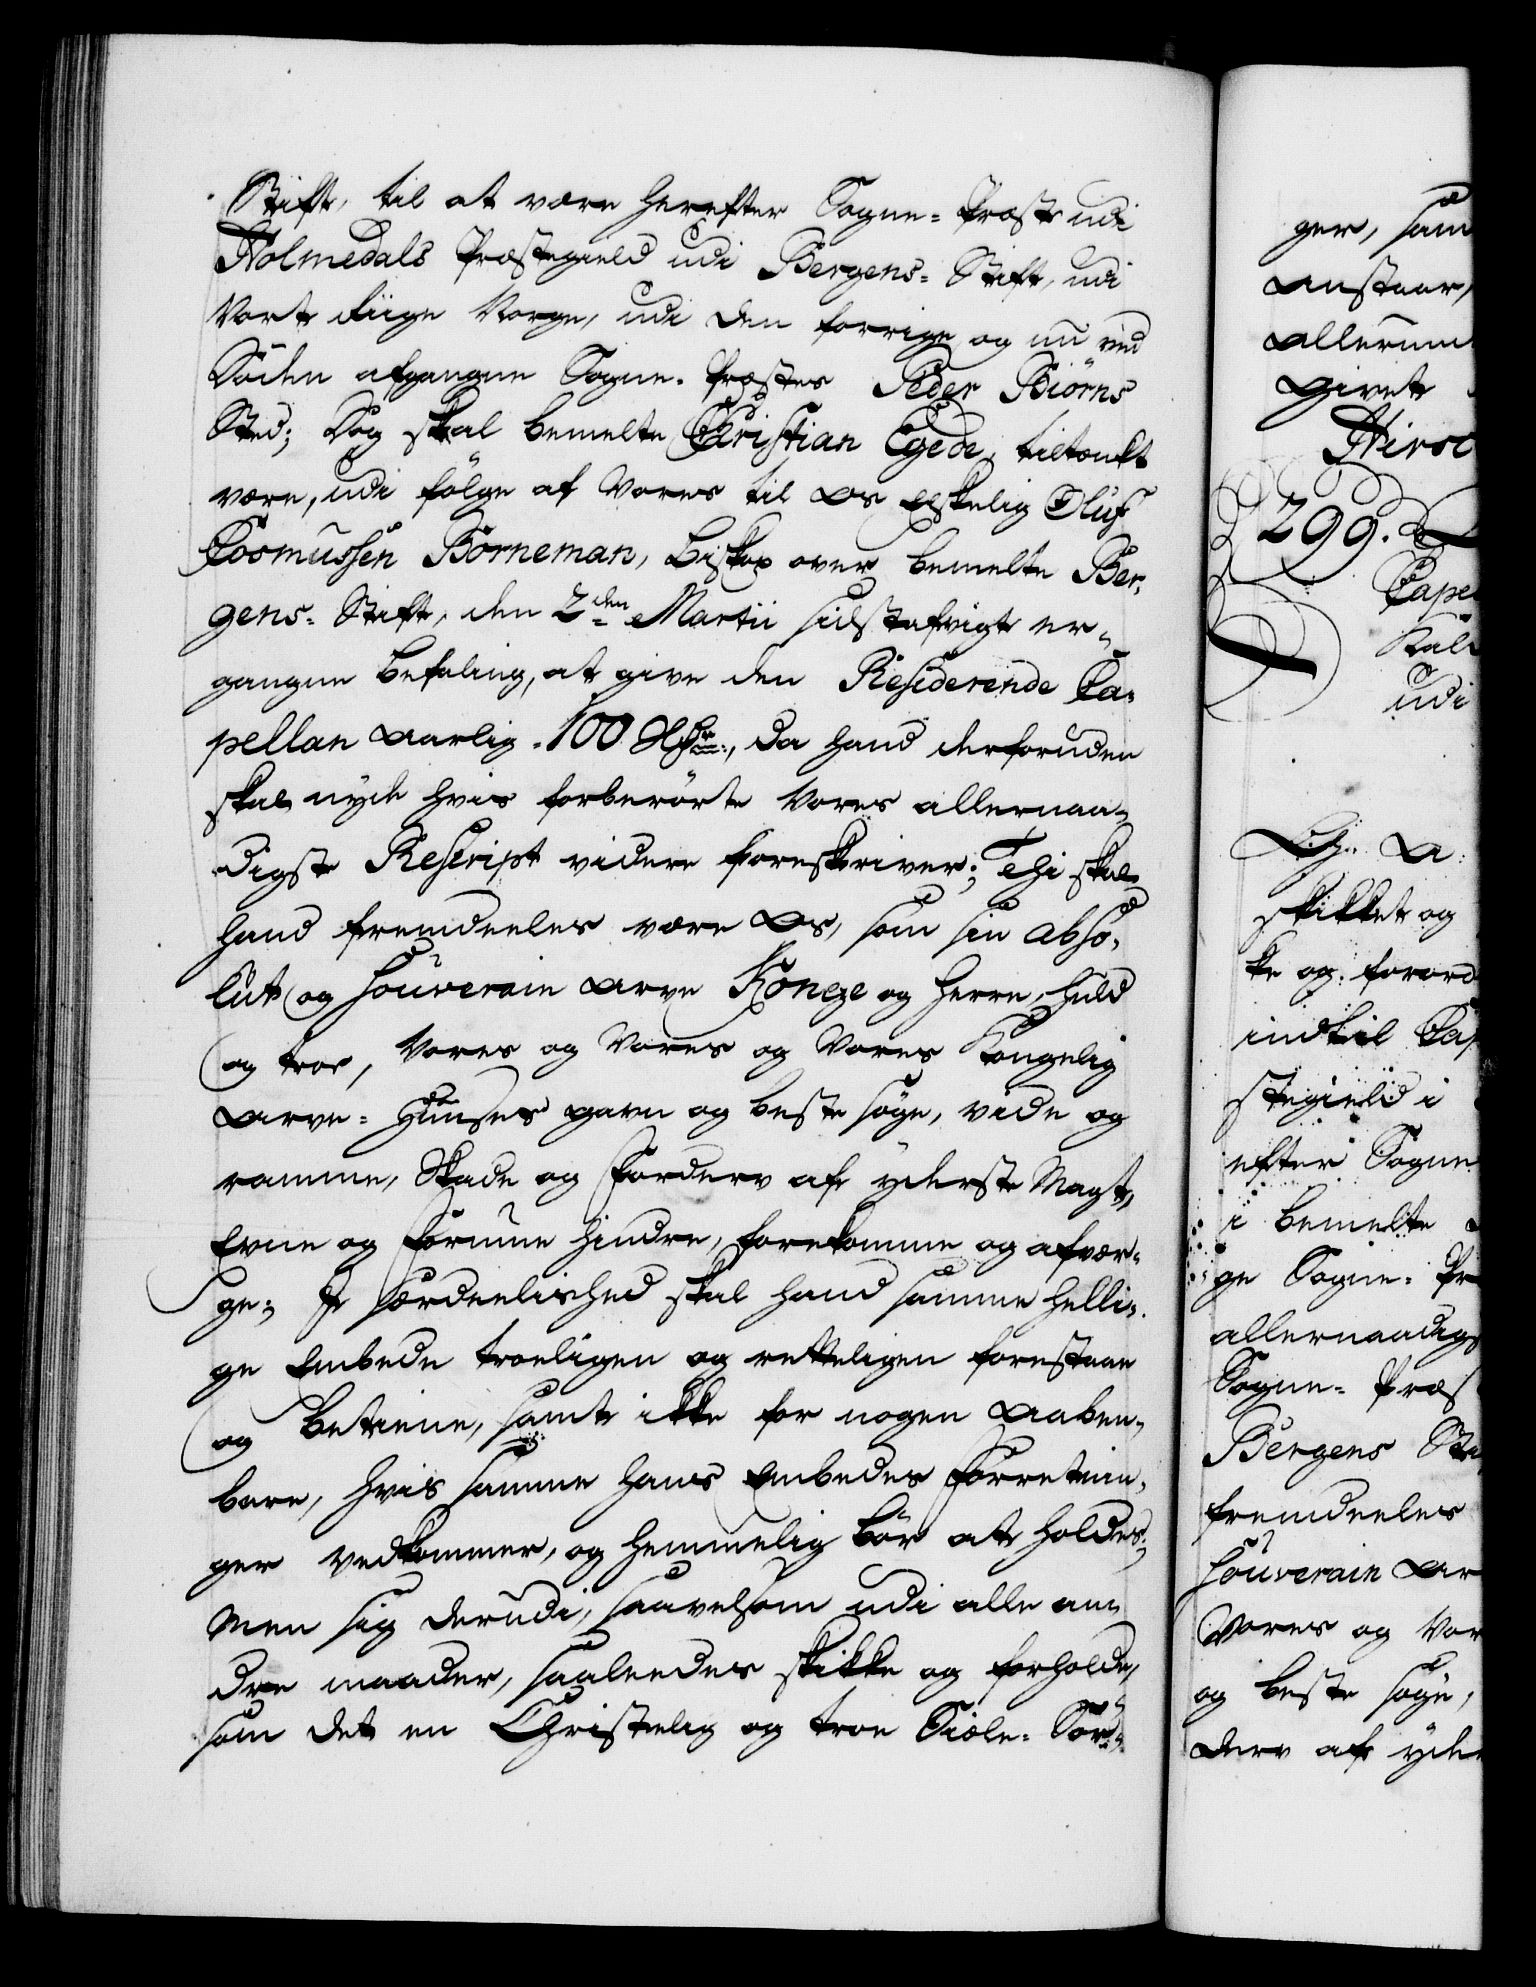 Stift, til at være herefter Sogne-Præst udi
Holmedals Præstegield udi Bergens-Stift, udi
Vort Riige Norge, udi den forrige og nu ved
Döden afgangne Sogne-Præstes Peder Biörns
Sted; Dog skal bemelte Christian Egede, tiltænkt
være, udi fölge af Vores til Os Elskelig Oluf
Cosmussen Borneman, Biskop over bemelte Ber-
gens-Stift, den 2den Martii sidstafvigt er-
gangne Befaling, at give den Residerende Ca-
pellan aarlig 100 Rdr., da hand derforuden
skal nyde hvis forberörte Vores allernaa-
digste Rescript videre foreskriver; Thi skal
hand fremdeeles være Os, som sin abso-
lut og Souverain Arve Konge og Herre, huld
og troe, Vores og Vores og Vores Kongelig
Arve-Huuses gavn og beste söge, vide og
ramme, Skade og Forderv af yderste Magt,
Evne og Formue hindre, forekomme og afvær-
ge; I særdeelished skal hand samme Helli-
ge Embede troeligen og retteligen forestaae
og betiene, samt ikke for nogen aaben-
bare, hvis samme hans Embedes Forretnin-
ger vedkommer, og hemmelig bör at holdes;
Men sig derudi, saavelsom udi alle an-
dre maader, saaledes skikke og forholde,
som det en Christelig og troe Siæle-Sör-
ger, sam
anstaar,
allerun
givet
Hirsc
299.
Cape
udi
L. G. A.
skikket og
ke og forord
indtil Cap
stegield i
efter Sogne
i bemelte
ge Sogne-Pr
allernaadigs
Sogne-Præs
Bergens Sti
fremdeeles
Souverain Ar
Vores og Vor
og beste söge,
derv af yder